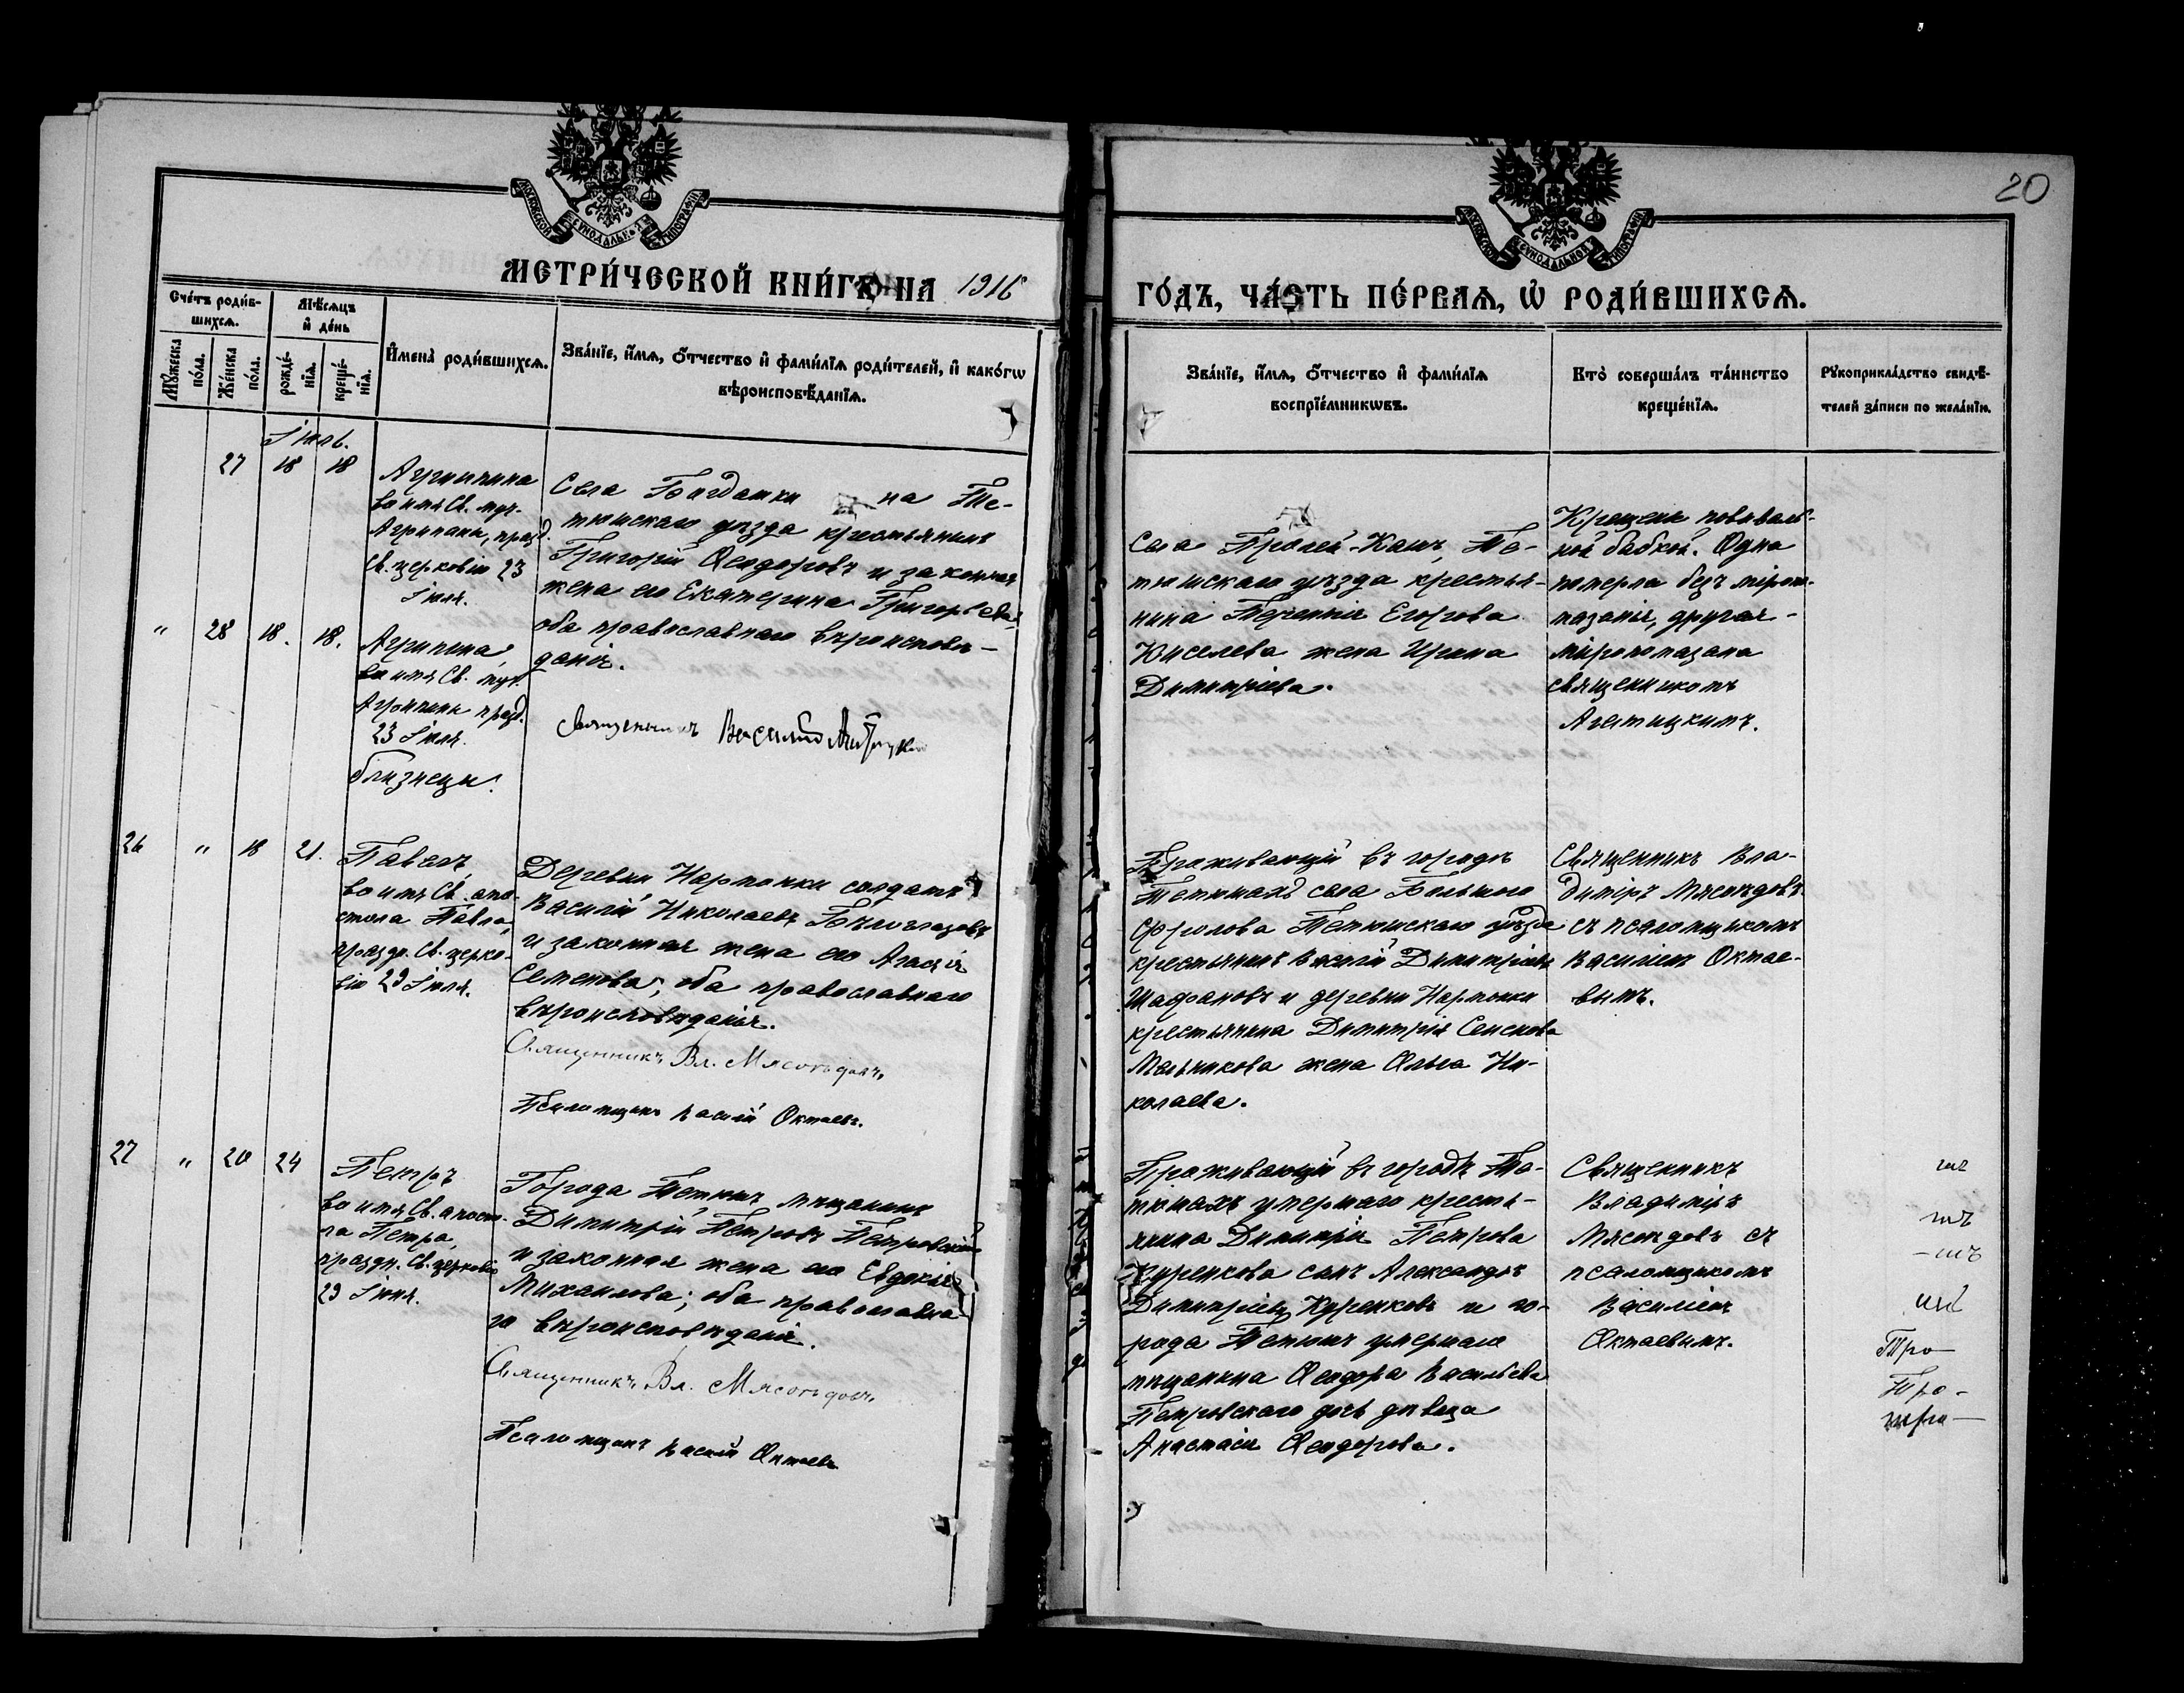 20
МОСКОВСКОЙ СѴНОДАЛЬНОЙ ТИПОГРАФІИ
МОСКОВСКОЙ СѴНОДАЛЬНОЙ ТИПОГРАФІИ
МЕТРИ́ЧЕСКОЙ КНИ́ГѢ НА 1916
ГО́ДЪ, ЧА́СТЬ ПЕ́РВАѦ, Ѡ РОДИ́ВШИХСѦ.
Сче́тъ роди́в-
шихсѧ.
Мꙋ́жеска
по́ла.
Же́нска
по́ла.
Мѣ́сѧцъ
и҆ де́нь
рожде́-
нїѧ.
креще́-
нїѧ.
И҆мена̀ роди́вшихсѧ.
Зва́нїе, и҆́мѧ, ѻ҆́тчество и҆ фами́лїѧ роди́телей, и҆ како́гѡ
вѣроисповѣ́данїѧ.
Зва́нїе, и҆́мѧ, ѻ҆́тчество и҆ фами́лїѧ
воспрїе́мникѡвъ.
Кто̀ соверша́лъ та́инство
креще́нїѧ.
Рꙋкоприкла́дство свидѣ́-
телей за́писи по жела́нїю.
27 18 18
Агрипина
во имя Св. муч.
Агрипины, празд.
Св. церковію 23
Іюня.
Села на Те-
тюшскаго уѣзда крестьянинъ
Григорій Ѳеодоровъ и законная
жена его Екатерина Григорьева,
оба православнаго вѣроисповѣ-
данія.
Священникъ Василій
Тетюшскаго уѣзда крестья-
нина Терентія Егорова
Киселева жена Ирина
Димитріева.
Крещены поваваль-
ной бабкой. Одна
померла безъ міропо-
мазанія, другая -
міропомазана
священникомъ
" 28 18. 18.
Агрипина,
во имя Св. муч.
Агрипины празд.
23 Іюня.
близнецы.
26 " 18 21.
Павелъ,
во имя Св. апо-
стола Павла,
праздн. Св. церко-
вію 29 Іюня.
Деревни Нармонки солдатъ
Василій Николаевъ Бѣлоглазовъ
и законная жена его Агафія
Семенова; оба православнаго
вѣроисповѣданія.
Священникъ Вл. Мясоѣдовъ.
Псаломщикъ Василій Октаевъ.
Проживающій въ городѣ
Тетюшахъ села Большого
Фролова Тетюшскаго уѣзда
крестьянинъ Василій Димитріевъ
Шафрановъ и деревни Нармонки
крестьянина Димитрія
Мельникова жена Ольга Ни-
колаева.
Священникъ Вла-
димиръ Мясоѣдовъ
съ псаломщикомъ
Василіемъ Октае-
вымъ.
27 " 20 24
Петръ
во имя Св. апосто-
ла Петра,
праздн. Св. церковію
29 Іюня.
Города Тетюшъ мѣщанинъ
Димитрій Петровъ Петровскій
и законная жена его Евдокія
Михаилова; оба православна-
го вѣроисповѣданія.
Священникъ Вл. Мясоѣдовъ.
Псаломщикъ Василій Октаевъ
Проживающій въ городѣ Те-
тюшахъ умершаго кресть-
янина Димитрія Петрова
Куренкова сынъ Александръ
Димитріевъ Куренковъ и го-
рода Тетюшъ умершаго
мѣщанина Ѳеодора Васильева
Петровскаго дочь дѣвица
Анастасія Ѳеодорова.
Священникъ
Владиміръ
Мясоѣдовъ съ
псаломщикомъ
Василіемъ
Октаевымъ.